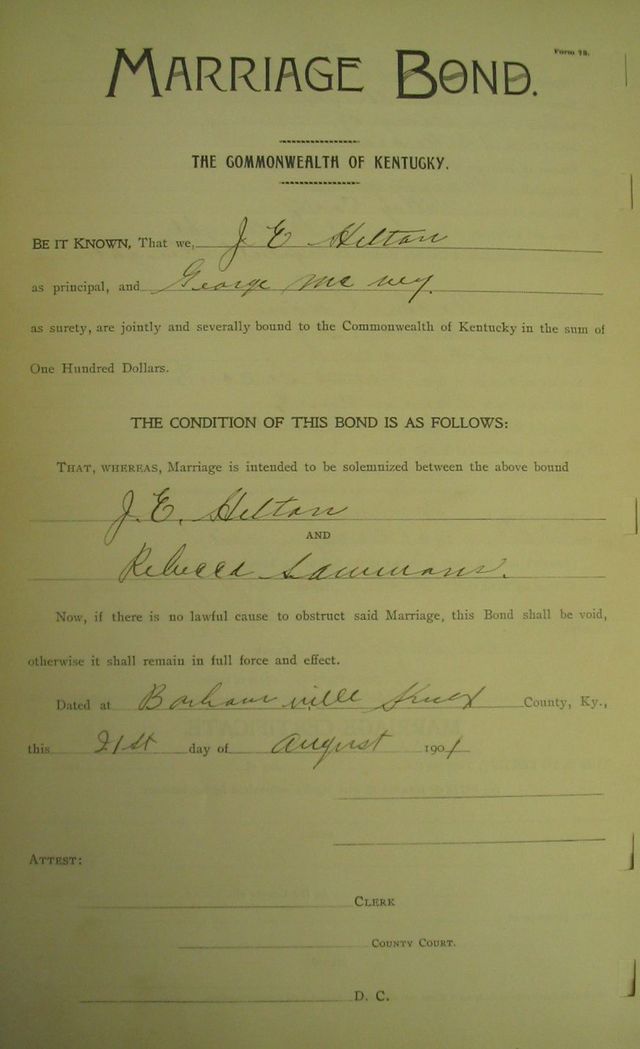 Form 78.
MARRIAGE BOND.
THE COMMONWEALTH OF KENTUCKY.
BE IT KNOWN, That we, J E Helton
as principal, and George Mc vey.
as surety, are jointly and severally bound to the Commonwealth of Kentucky in the sum of
One Hundred Dollars.
THE CONDITION OF THIS BOND IS AS FOLLOWS:
THAT, WHEREAS, Marriage is intended to be solemnized between the above bound
J. E. Helton
AND
Rebecca Sammons.
Now, if there is no lawful cause to obstruct said Marriage, this Bond shall be void,
otherwise it shall remain in full force and effect.
Dated at Barbourville Knox County, Ky.,
this 21st day of August 1901
ATTEST:
CLERK
COUNTY COURT.
D. C.